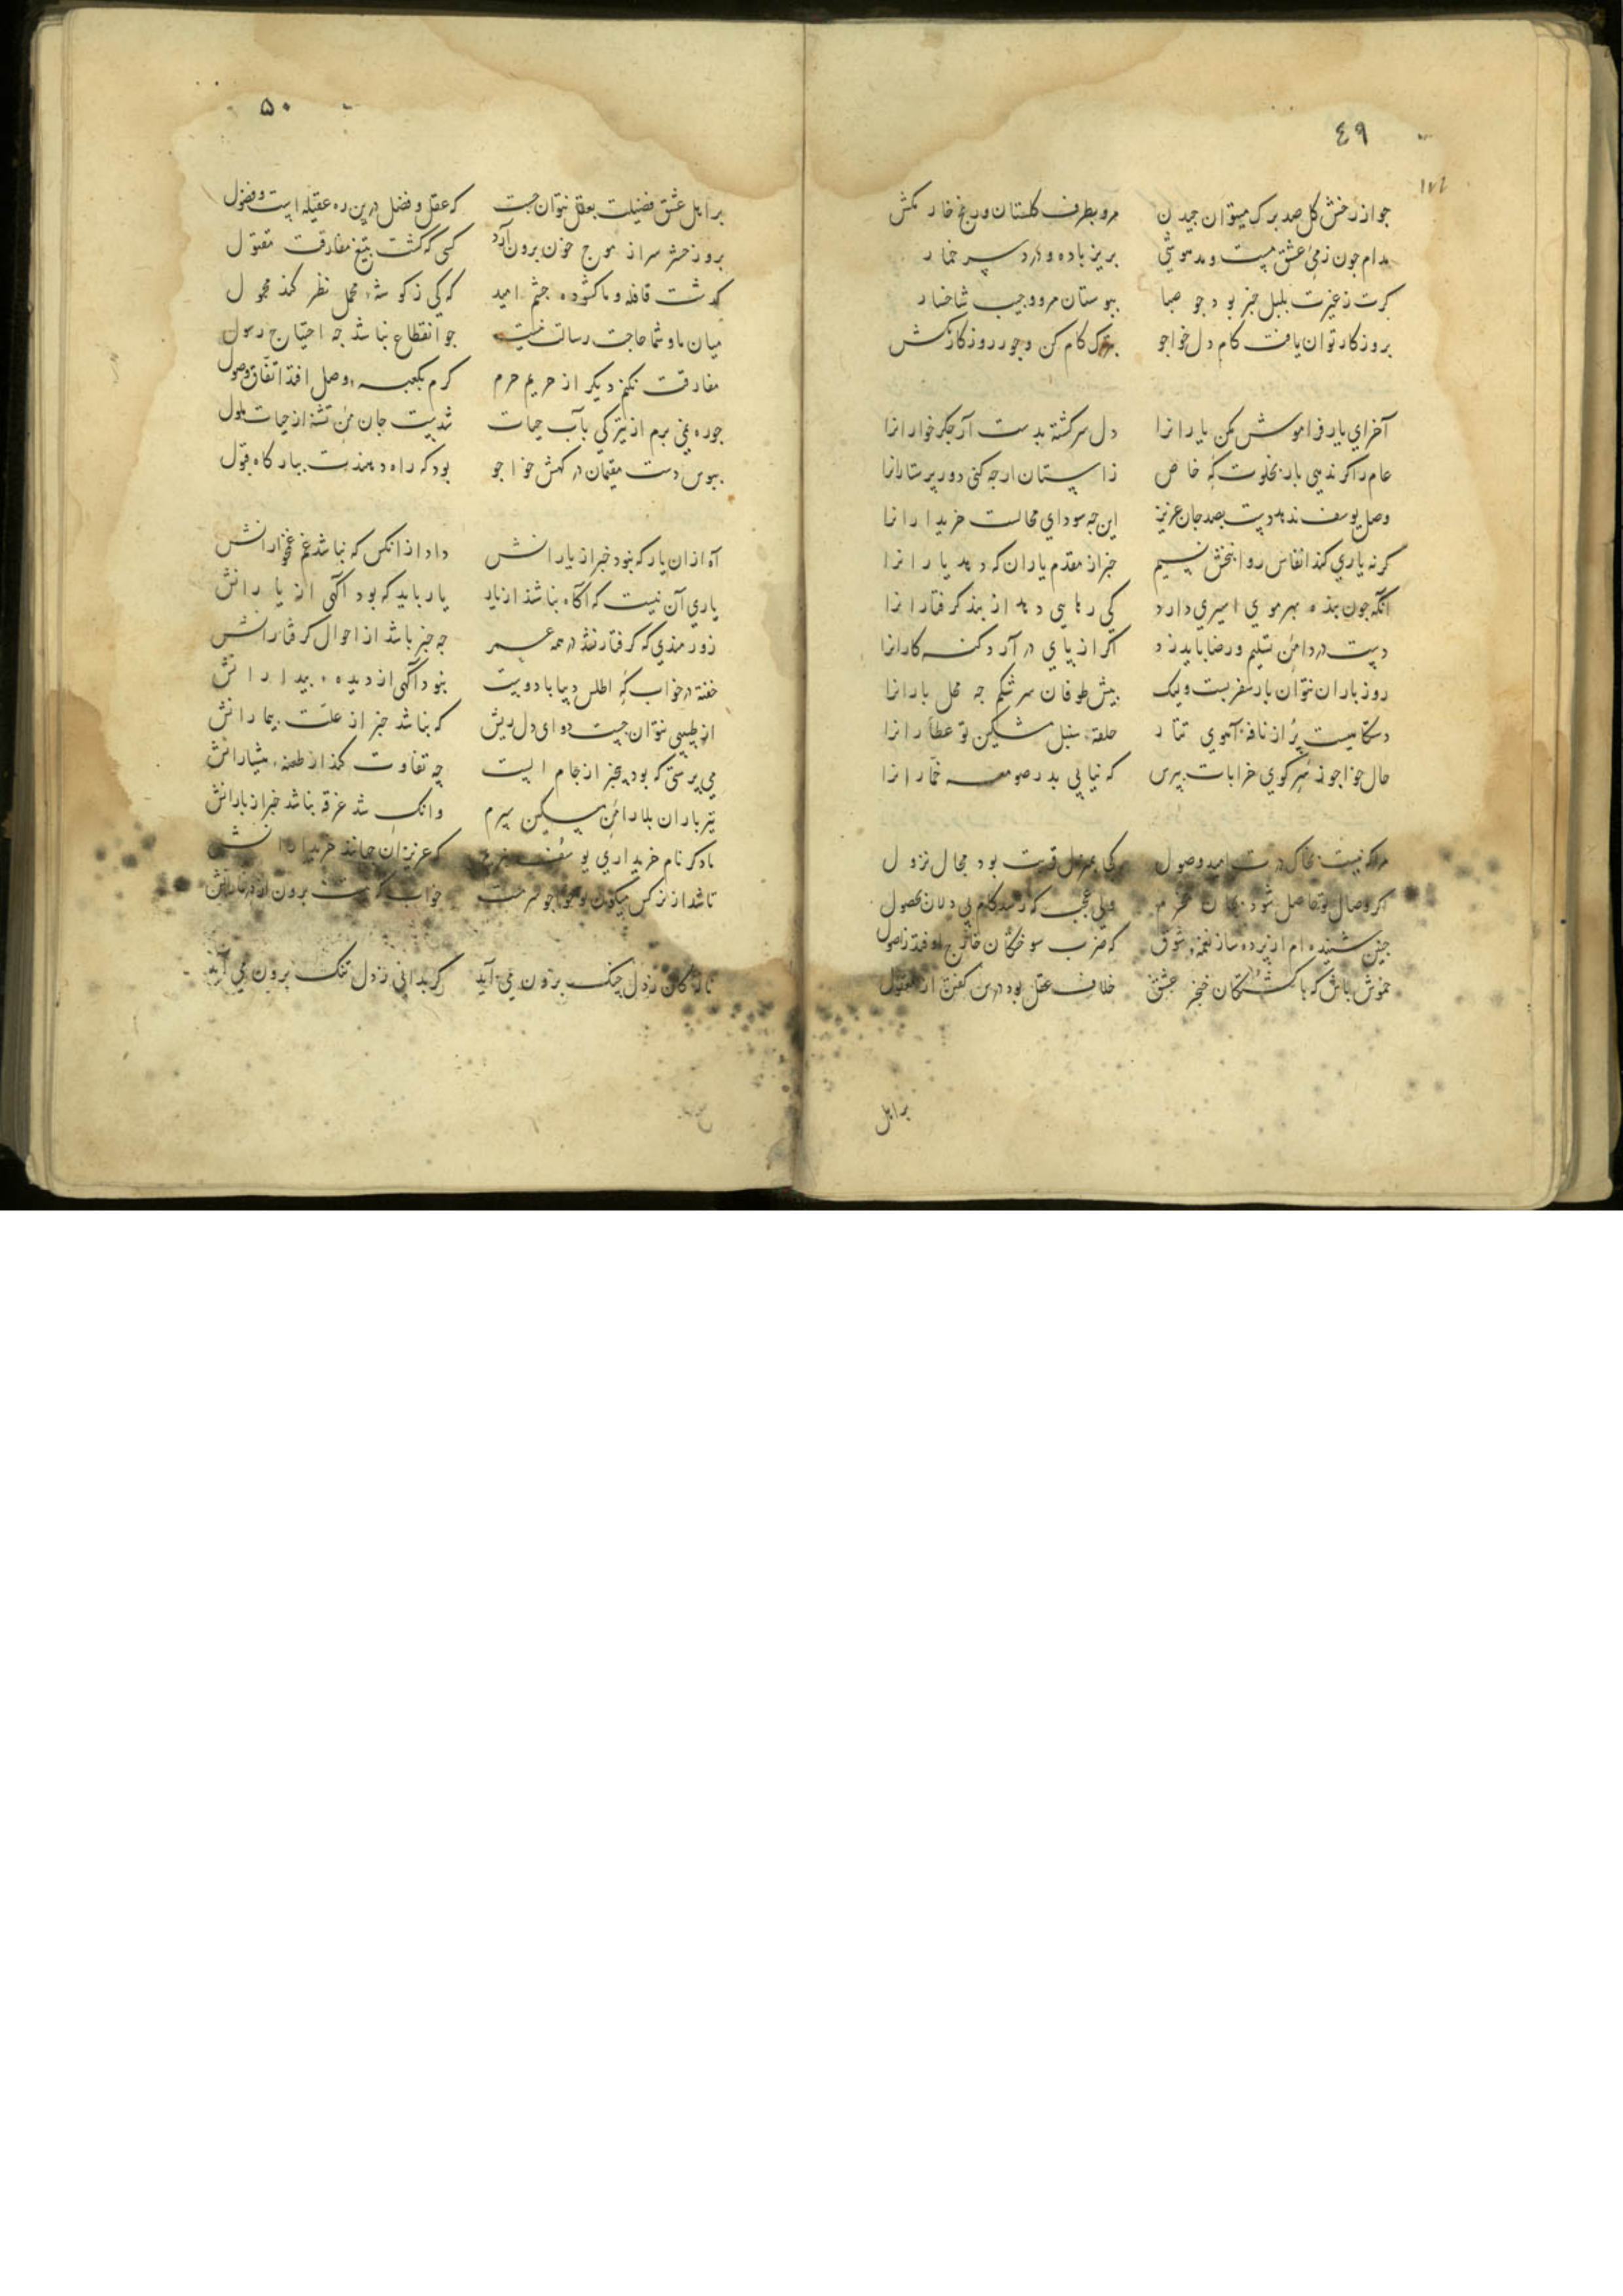 ٤٩
جو از رخش گل صد برگ میتوان چیدن مرو بطرف گلستان و رنج خار مکش
مدام چون ز می عشق مست و مدهوشی بریز باده و درد سر خمار
گرت ز غیرت بلبل خبر بود چو صبا ببوستان مرو و جیب شاخسار
بروزگار توان یافت کام دل خواجو بترک کام کن و جور روزگار مکش
آخر ای یار فراموش مکن یارانرا دل سرگشته بدست آر جگر خوارانرا
عام را گر ندهی بار بخلوتگه خاص ز آستان از چه کنی دور پرستارانرا
وصل یوسف ندهد دست بصد جان عزیز این چه سودای محالست خریدارانرا
گرنه یاری کند انفاس روانبخش نسیم خبر از مقدم یاران که دهد یارانرا
آنکه چون بنده بهر موی اسیری دارد کی رهایی دهد از بند گرفتارانرا
دست در دامن تسلیم و رضا باید زد اگر از پای در آرد گنه کارانرا
روز باران نتوان بار سفر بست ولیک پیش طوفان سرشکم چه محل بارانرا
دستگاهیست پر از نافه آهوی تتار حلقه سنبل مشکین تو عطارانرا
حال خواجو ز سر کوی خرابات بپرس که نیابی بدر صومعه خمارانرا
مرا که نیست بخاک درت امید وصول کی بمنزل قربت بود مجال نزول
اگر وصال تو حاصل شود ولی عجب که رسد کام بی دلان بحصول
چنین شنیده ام از پرده ساز نغمه شوق که ضرب سوختگان خارج اوفتد ز اصول
خموش باش که با کشتگان خنجر عشق خلاف عقل بود درس گفتن از معقول
بر اهل
۵۰
بر اهل عشق فضیلت بعقل نتوان جست که عقل و فضل درین ره عقیله است و فضول
بروز حشر سر از موج خون برون آرد کسی که گشت بتیغ مفارقت مقتول
گذشت قافله و ما گشوده چشم امید که کی ز گوشه محمل نظر کند محمول
میان ما و شما حاجت رسالت نیست چو انقطاع نباشد چه احتیاج رسول
مفارقت نکنم دیگر از حریم حرم گرم بکعبه وصل افتد اتفاق وصول
چو ره نمی برم از تیرگی بآب حیات شدست جان من تشنه از حیات ملول
ببوس دست مقیمان درگهش خواجو بود که راه دهندت ببارگاه قبول
آه از آن یار که نبود خبر از یارانش داد از آنکس که نباشد غم غمخوارانش
یاری آن نیست که آگاه نباشد از یار یار باید که بود آگهی از یارانش
زورمندی که گرفتار نشد در همه عمر چه خبر باشد از احوال گرفتارانش
خفته در خواب گه اطلس و دیبا بادوست نبود آگهی از دیده بیدارانش
از طبیبی نتوان جست دوای دل ریش که نباشد خبر از علت بیمارانش
می پرستی که بود بیخبر از جام الست چه تفاوت کند از طعنه هشیارانش
تیر باران بلا را من مسکین سپرم وانک شد غرقه نباشد خبر از بارانش
یاد کن نام خریداری یوسف که عزیزان جهانند خریدارانش
تا شد از نرگس میگون خواجو سرمست خواب گه نیست برون از در خمارانش
ناوکان ز دل چنگ برون می آید گر بدانی ز دل تنگ برون می آید